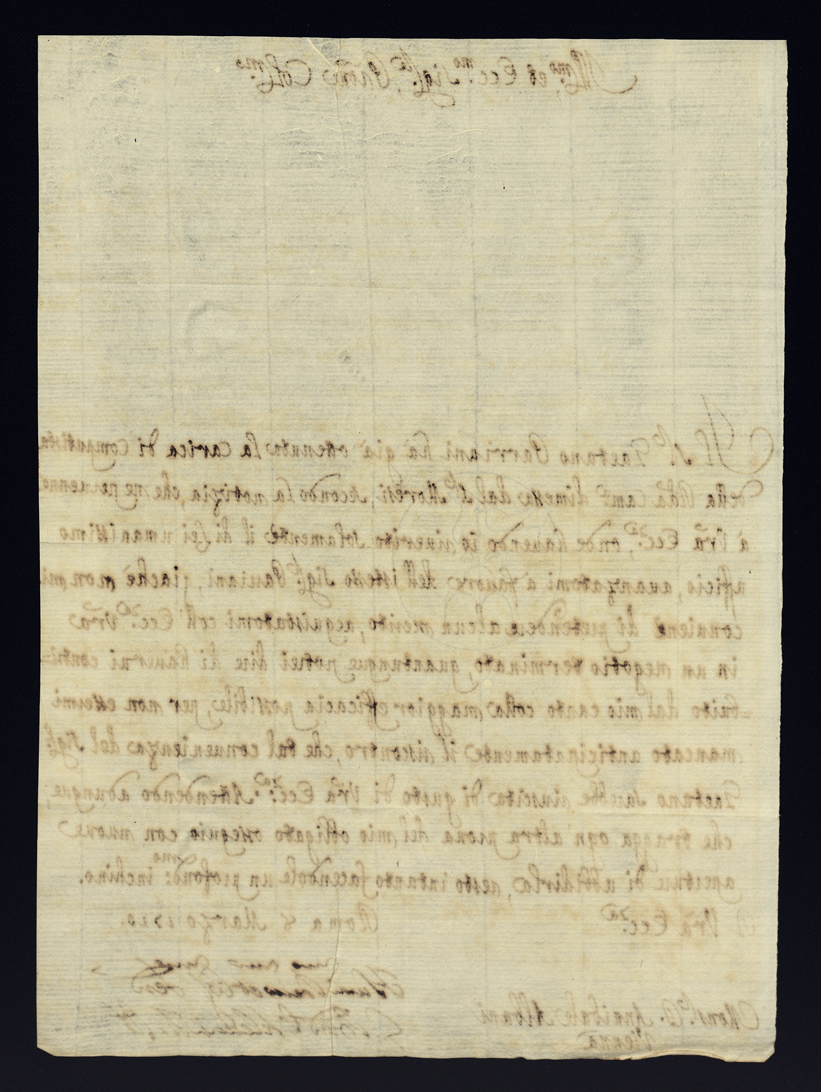 Ill.mo, ed Ecc.mo Sig.re, Prone Col.mo
Il S.r Gaetano ha già ottenuta la carica di Computista
della Cam.a dimessa dal S.r Moresi, secondo la notizia, che ne pervenne
à Vra Ecc.za, onde havendo io riverito solamente il di Lei umanissimo
ufficio, avanzatomi à favore dell'istesso Sig.r, giache non mi
conviene di pretendere alcun merito, acquistatomi coll'Ecc.za Vra
in un negotio terminato, quantunque potrei dire di havervi contri-
buito dal mio canto colla maggior efficacia possibile, per non essermi
mancato anticipatamente il riscontro, che tal convenienza del Sig.r
Gaetano sarebbe riuscita di gusto di Vra Ecc.za. Attendendo adunque,
che tragga ogn'altra prova del mio obligato ossequio con nuove
aperture di ubbidirla, resto intanto facendole un profond.mo inchino.
Di Vra Ecc.za
Roma 8 Marzo 1710.
Mons.r D. Annibale Albani
Vienna